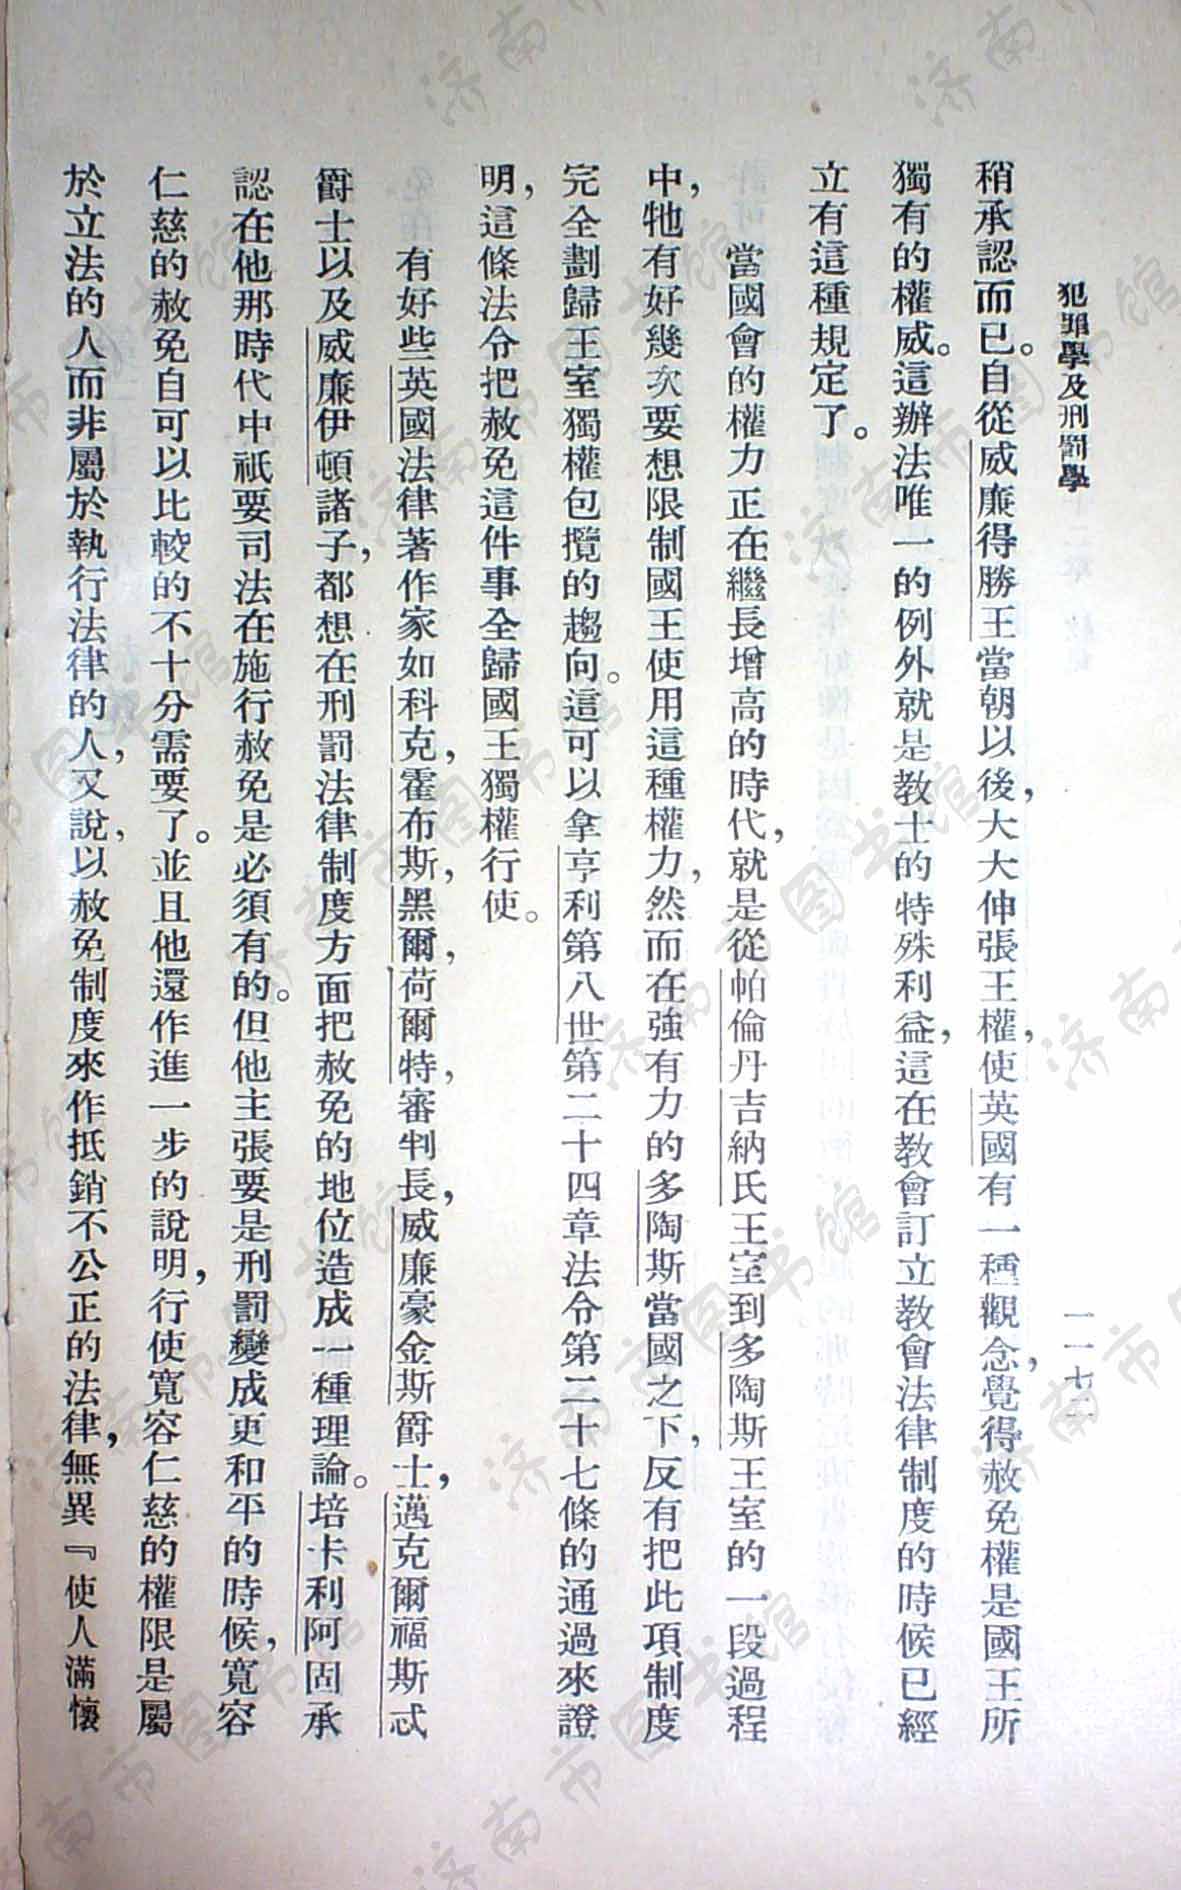 犯罪學及刑罰學
一一七二
稍承認而已。自從威廉得勝王當朝以後，大大伸張王權，使英國有一種觀念，覺得赦免權是國王所
獨有的權威。這辦法唯一的例外就是教士的特殊利益，這在教會訂立教會法律制度的時候已經
立有這種規定了。
當國會的權力正在繼長增高的時代，就是從帕倫丹吉納氏王室到多陶斯王室的一段過程
中，牠有好幾次要想限制國王使用這種權力，然而在強有力的多陶斯當國之下，反有把此項制度
完全劃歸王室獨權包攬的趨向。這可以拿亨利第八世第二十四章法令第二十七條的通過來證
明，這條法令把赦免這件事全歸國王獨權行使。
有好些英國法律著作家如科克，霍布斯，黑爾，荷爾特審判長，威廉豪金斯爵士，邁克爾福斯忒
爵士以及威廉伊頓諸子，都想在刑罰法律制度方面把赦免的地位造成一種理論。培卡利阿固承
認在他那時代中祇要司法在施行赦免是必須有的。但他主張要是刑罰變成更和平的時候，寬容
仁慈的赦免自可以比較的不十分需要了。並且他還作進一步的說明，行使寬容仁慈的權限是屬
於立法的人而非屬於執行法律的人，又說，以赦免制度來作抵銷不公正的法律，無異『使人滿懷
济南市图书馆